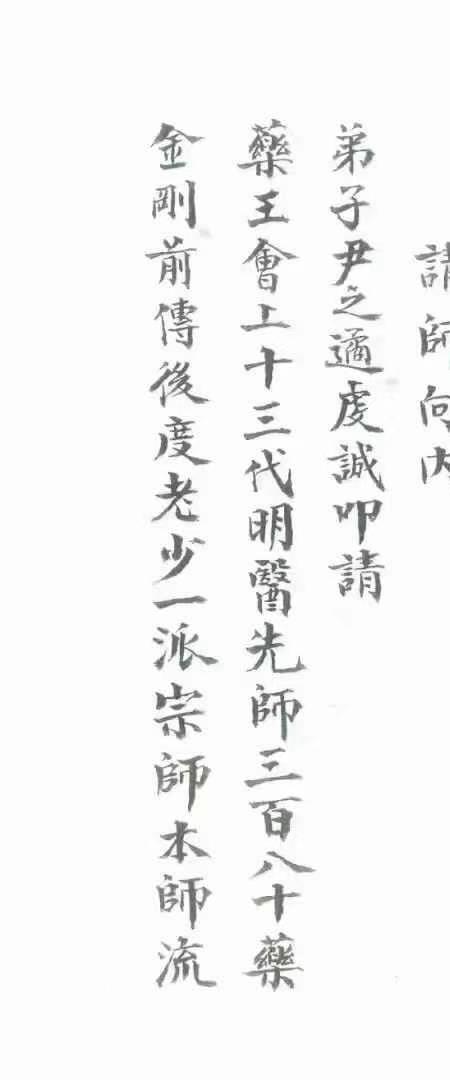 請師向內
弟子尹之遹虔誠叩請
藥王會上十三代明醫先師三百八十藥
金剛前傳後度老少一派宗師本師流